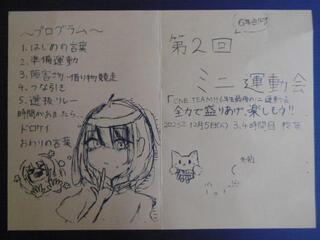 〜プログラム〜
1.はじめの言葉
2.準備運動
3.障害物・借り物競走
4.つな引き
5.選抜リレー
時間があまったら…
ドロケイ
おわりの言葉
第2回
ミニ運動会
「ONE TEAM!! 6年生最後のミニ運動会
全力で盛りあげ、楽しもう!!
12月5日(火) 3,4時間目 校庭